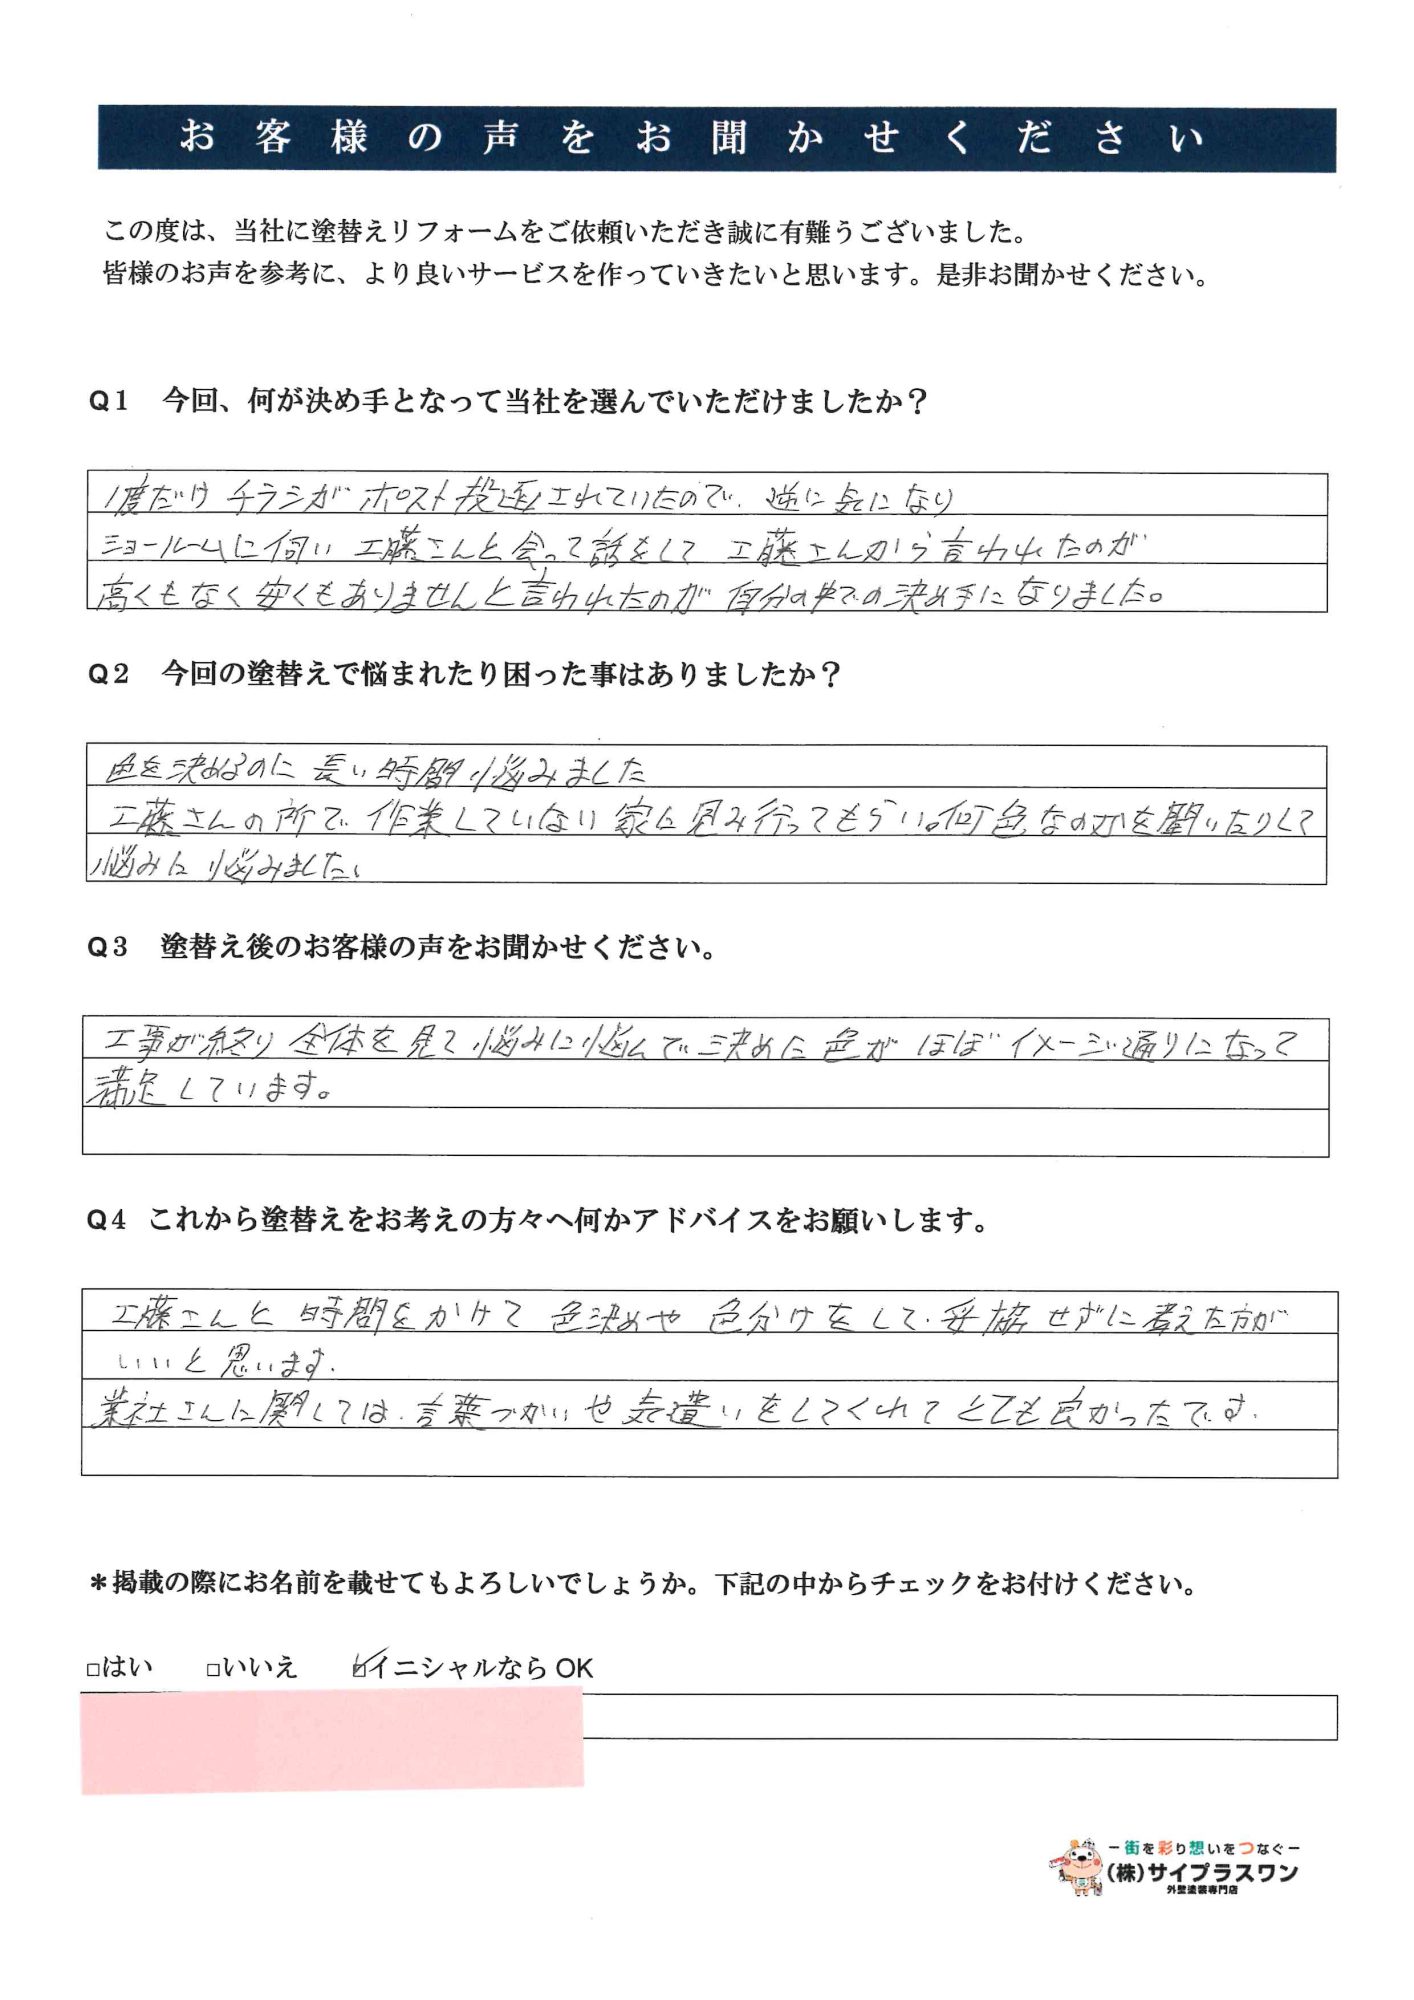 お客様の声をお聞かせください
この度は、当社に塗替えリフォームをご依頼いただき誠に有難うございました。
皆様のお声を参考に、より良いサービスを作っていきたいと思います。是非お聞かせください。
Q1 今回、何が決め手となって当社を選んでいただけましたか？
1度だけチラシがポスト投函されていたので、逆に気になり
ショールームに伺い工藤さんと会って話をして工藤さんから言われたのが
高くもなく安くもありませんと言われたのが自分の中での決め手になりました。
Q2 今回の塗替えで悩まれたり困った事はありましたか？
色を決めるのに長い時間悩みました
工藤さんの所で作業していない家に見み行ってもらい。何色なのかを聞いたりして
悩みに悩みました、
Q3 塗替え後のお客様の声をお聞かせください。
工事が終り全体を見て悩みに悩んで決めた色がほぼイメージ通りになって
満足しています。
Q4 これから塗替えをお考えの方々へ何かアドバイスをお願いします。
工藤さんと時間をかけて色決めや色分けをして、妥協せずに考えた方が
いいと思います.
業社さんに関しては、言葉づかいや気遣いをしてくれてとても良かったです.
＊掲載の際にお名前を載せてもよろしいでしょうか。下記の中からチェックをお付けください。
□はい □いいえ ☑イニシャルなら OK
－街を彩り想いをつなぐ－
(株)サイプラスワン
外壁塗装専門店